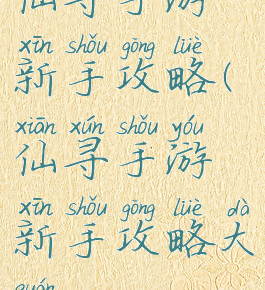 仙寻手游
xīn shǒu gōng lüè
新手攻略(
xiān xún shǒu yóu
仙寻手游
xīn shǒu gōng lüè dà
新手攻略大
quán